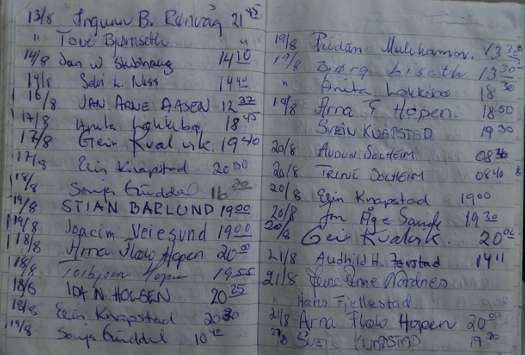 13/8 Ingunn B. Rønvåg 21 45
" Tove Bjørnseth "
14/8 Jan W 14 20
14/8 Solvi L. Moss 14 40
16/8 JAN ARNE AASEN 12 32
17/8 Anita Løkkebø 18 45
17/8 Geir Kvalvik. 19 40
17/8 Egin Knapstad 20 00
18/8 Sonja Gunddal 16 20
19/8 STIAN BARLUND 19 00
19/8 Joacim Veiesund 19 00
18/8 Arna Flolo Hopen 20 00
18/8 Torbjørn Hopen 19 55
18/8 IDA N HOLSEN 20 25
18/8 Egin Knapstad 20 30
19/8 Sonja Gunddal 10
19/8 Muhamm. 13 30
19/8 Bjørg Liseth 13 30
" Anita Løkkebø 18 30
19/8 Arna F Hopen. 18 50
SVEIN KNAPSTAD 19 30
20/8 AUDUN SOLHEIM 08
20/8 TRINE SOLHEIM 08 40
20/8 Egin Knapstad 19 00
20/8 Jon Åge Sande 19 30
20/8 Geir Kvalvik. 20 00
21/8 Audhild H. 14 11
21/8 Anne Nordnes
" Hans Fjellestad
21/8 Arna Flolo Hopen 20
SVEIN KNAPSTAD 19